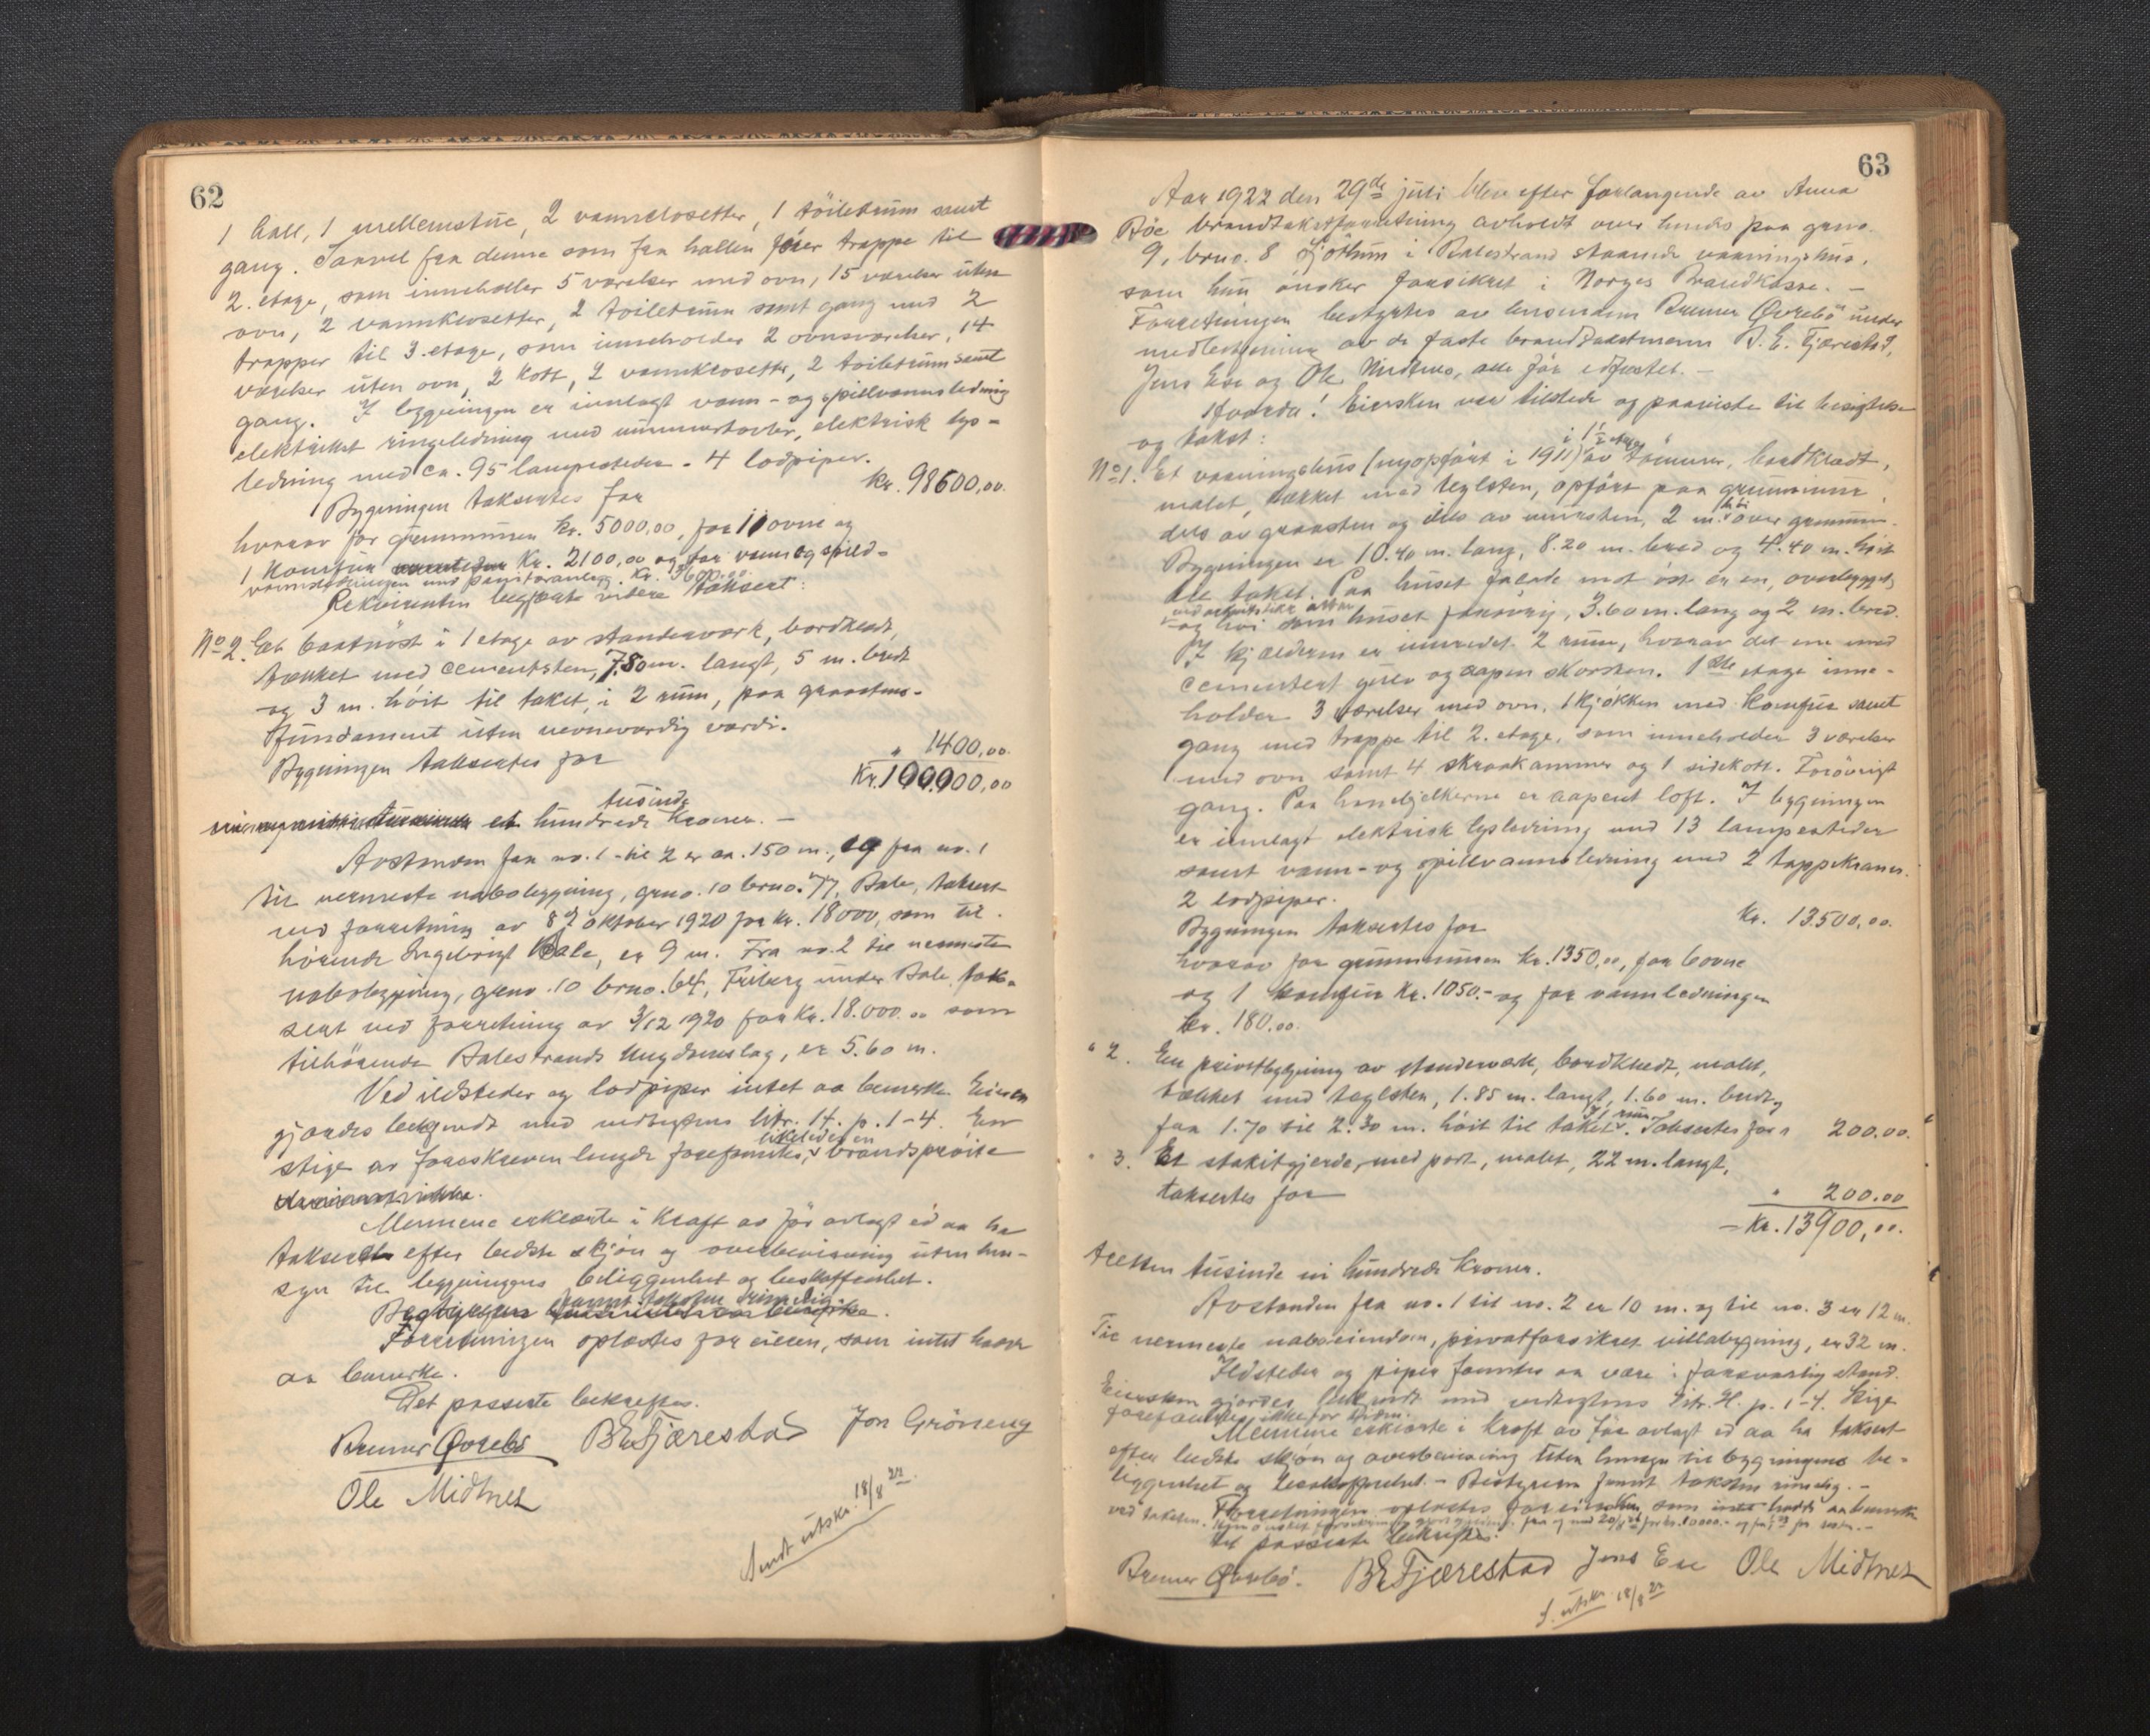 62
1 hall, 1 mellemstue, 2 vannclosetter, 1 töiletrum samt
gang. Saavel fra denne som fra hallen förer trappe til
2. etage, som inneholder 5 værelser med ovn, 15 værelser uten
ovn, 2 vannklosetter, 2 toiletrum samt gang med 2
trapper til 3. etage, som inneholder 2 ovnsværelser, 14
værelser uten ovn, 2 kott, 2 vannklosetter, 2 toiletrum samt
gang. I bygningen er innlagt vann- og spillvannsledning
elektrisk ringeledning med nummertavler, elektrisk lys-
ledning med ca. 95 lampesteder. 4 lodpiper.
Bygningen takseres for kr. 98600,00.
hvorav for grunnmuren kr. 5000,00, for 11 ovne og
1 komfur kr. 2100,00 og for vann og spild-
vannsledningen med
Rekvirenten begjærte videre taksert:
No 2. Et baatnöst i 1 etage av stenderverk, bordklædt,
tækket med cementsten, 7.80 m. langt, 5 m. bredt
og 3 m. höit til taket, i 2 rum, paa graastens-
fundament uten nevneverdig værdi.
Bygningen takseres for " 1400,00.
Kr. 100.000,00
et hundrede tusinde Kroner. –
Avstanden fra no. 1 til 2 er ca. 150 m., og fra no. 1
til nermeste nabobygning, gnr. 10 brno. 77, Bale, taksert
ved forretning av 8de oktober 1920 for kr. 18000, som til-
hörende Ingebrigt Bale, er 9 m. Fra no. 2 til nermeste
nabobygning, grno. 10 brno. 64, Friborg under Bale, tak-
sert ved forretning av 3/12 1920 for Kr. 18.000.00 som
tilhörende Balestrands Ungdomslag, er 5.60 m.
Ved ildsteder og lodpiper intet aa bemerke. Eieren
gjordes bekjendt med vedtegtens litr. H. p. 1-4. En
stige av foreskreven lengde forefandtes, likeledes en brandspröite
Mennene erklærte i kraft av för avlagt ed aa ha
taksert efter bedste skjön og overbevisning uten hen-
syn til bygningens beliggenhet og beskaffenhet.
Bestyreren fannt taksten rimelig.
Forretningen oplæstes for eieren, som intet hadde
aa bemerke.
Det passerte bekreftes.
Bremer Øvrebö B E Fjærestad Jon Gröneng
Ole Midtnes
Sendt utskr. 18/8 22.
63
Aar 1922 den 29de juli blev efter forlangende av Anna
Böe brandtakstforretning avholdt over hendes paa grno.
9, brno. 8 Sjötun i Balestrand staaende vaaningshus,
som hun önsker forsikret i Norges Brandkasse. –
Forretningen bestyrtes av lensmann Bremer Øvrebö under
medbetjening av de faste brandtakstmenn B. E. Fjærestad,
Jens Ese og Ole Midtnes, alle för edfæstet. –
Hvorda! Eiersken var tilstede og paaviste til besigtelse
og takst:
No 1. Et vaaningshus (nyopfört i 1911) i 1 1/2 etage av tömmer, bordklædt,
malet, tækket med teglsten, opfört paa grunnmur
dels av graasten og dels av mursten, 2 m. höi over grunnen.
Bygningen er 10.40 m. lang, 8.20 m. bred og 4.40 m. höit
til taket. Paa husets facade mot öst er en, overbygget,
og höi som huset forövrig, 3.60 m. lang og 2 m. bred.
I kjælderen er innredet 2 rum, hvorav det ene med
cementert gulv og aapen skorsten. 1ste etage inne-
holder 3 værelser med ovn, 1 kjøkken med komfur samt
gang med trappe til 2. etage, som inneholder 3 værelser
med ovn samt 4 skraakammer og 1 sidekott. Forövrigt
gang. Paa hanebjelkerne er aapent loft. I bygningen
er innlagt elektrisk lysledning med 13 lampesteder
samt vann- og spillvannsledning med 2 tappekraner.
2 lodpiper.
Bygningen takseres for Kr. 13.500,00.
hvorav for grunnmuren Kr. 1350,00, for 6 ovne
og 1 komfur Kr. 1050.- og for vannledningen
kr. 180.00.
" 2. En privetbygning av stenderverk, bordklædt, malet,
tækket med teglsten, 1.85 m. langt, 1.60 m. bredt og
fra 1.70 til 2.30 m. höit til taket. I 1 rum. Takseres for " 200.00.
" 3. Et stakitgjerde, med port, malet, 22 m. langt,
takseres for " 200.00
– Kr. 13900,00.
tretten tusinde ni hundrede Kroner.
Avstanden fra no. 1 til no. 2 er 10 m. og til no. 3 er 12 m.
Til nermeste naboeiendom, privatforsikret villabygning, er 32 m.
Ildsteder og piper fanntes aa være i forsvarlig stand.
Eiersken gjordes bekjendt med vedtegtens litr. H. p. 1-4. Stige
forefandtes ikke for tiden.
Mennene erklærte i kraft av för avlagt ed aa ha taksert
efter bedste skjön og overbevisning uten hensyn til bygningens be-
liggenhet og beskaffenhet. – Bestyreren fannt taksten rimelig. –
Forretningen oplæstes for eiersken, som intet hadde aa bemerke
ved taksten.
Det passerte bekreftes.
Bremer Øvrebö. B E Fjærestad Jens Ese Ole Midtnes
S. utskr. 18/8 22